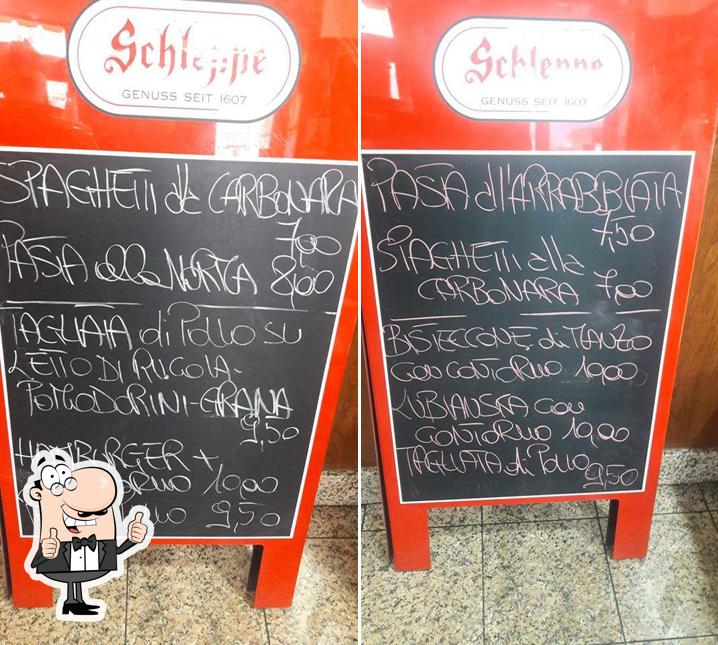 Schleppe
GENUSS SEIT 1607
SPAGHETTI alla CARBONARA
7,00
PASTA alla NORMA 8,00
TAGLIATA di POLLO SU
LETTO DI RUCOLA-
POMODORINI-GRANA
9,50
HAMBURGER +
10,00
9,50
Schleppe
GENUSS SEIT 1607
PASTA all'ARRABBIATA
7,50
SPAGHETTI alla
CARBONARA 7,00
BISTECCONE di MANZO
con CONTORNO 10,00
LUBIANSKA con
CONTORNO 10,00
TAGLIATA di POLLO
9,50